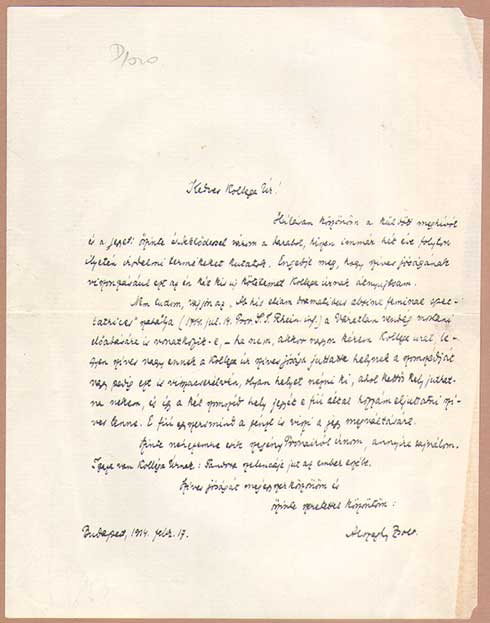 Kedves Kollega Úr!
Hálásan köszönöm a küldött meghívót
és a jegyet: őszinte érdeklődéssel várom a darabot, hiszen immár két éve folyton
ilyetén irodalmi termékeket kutatok. Engedje meg, hogy szíves jóságának
viszonzásául ezt az én két kis új kötetemet Kollega úrnak átnyujtsam.
Nem tudom, vajjon az „Ab his etiam dramatibus absint feminae spec-
tatrices" (1914. jul. 14. Prov. S. S. Rhein. inf.) a Váratlan vendég mostani
előadására is vonatkozik-e, – ha nem, akkor nagyon kérem Kollega urat le-
gyen szíves vagy ennek a Kollega úr szíves jósága juttatta helynek a
vagy pedig ezt is visszacserélvén, olyan helyet nézni ki, ahol kettős hely juthat-
na nekem, és így a két szomszéd hely jegyét e fiú által hozzám eljuttatni szí-
ves lenne. E fiú egyszersmind a pénzt is viszi a jegy megváltására.
Őszinte nehezemre esik szegény írnom, annyira sajnálom.
Igaza van Kolléga Úrnak: Pandora szelencéje jut az ember eszébe.
Szíves jóságát mégegyszer köszönöm és
őszinte szeretettel köszöntöm:
Budapest, 1914. febr. 17.